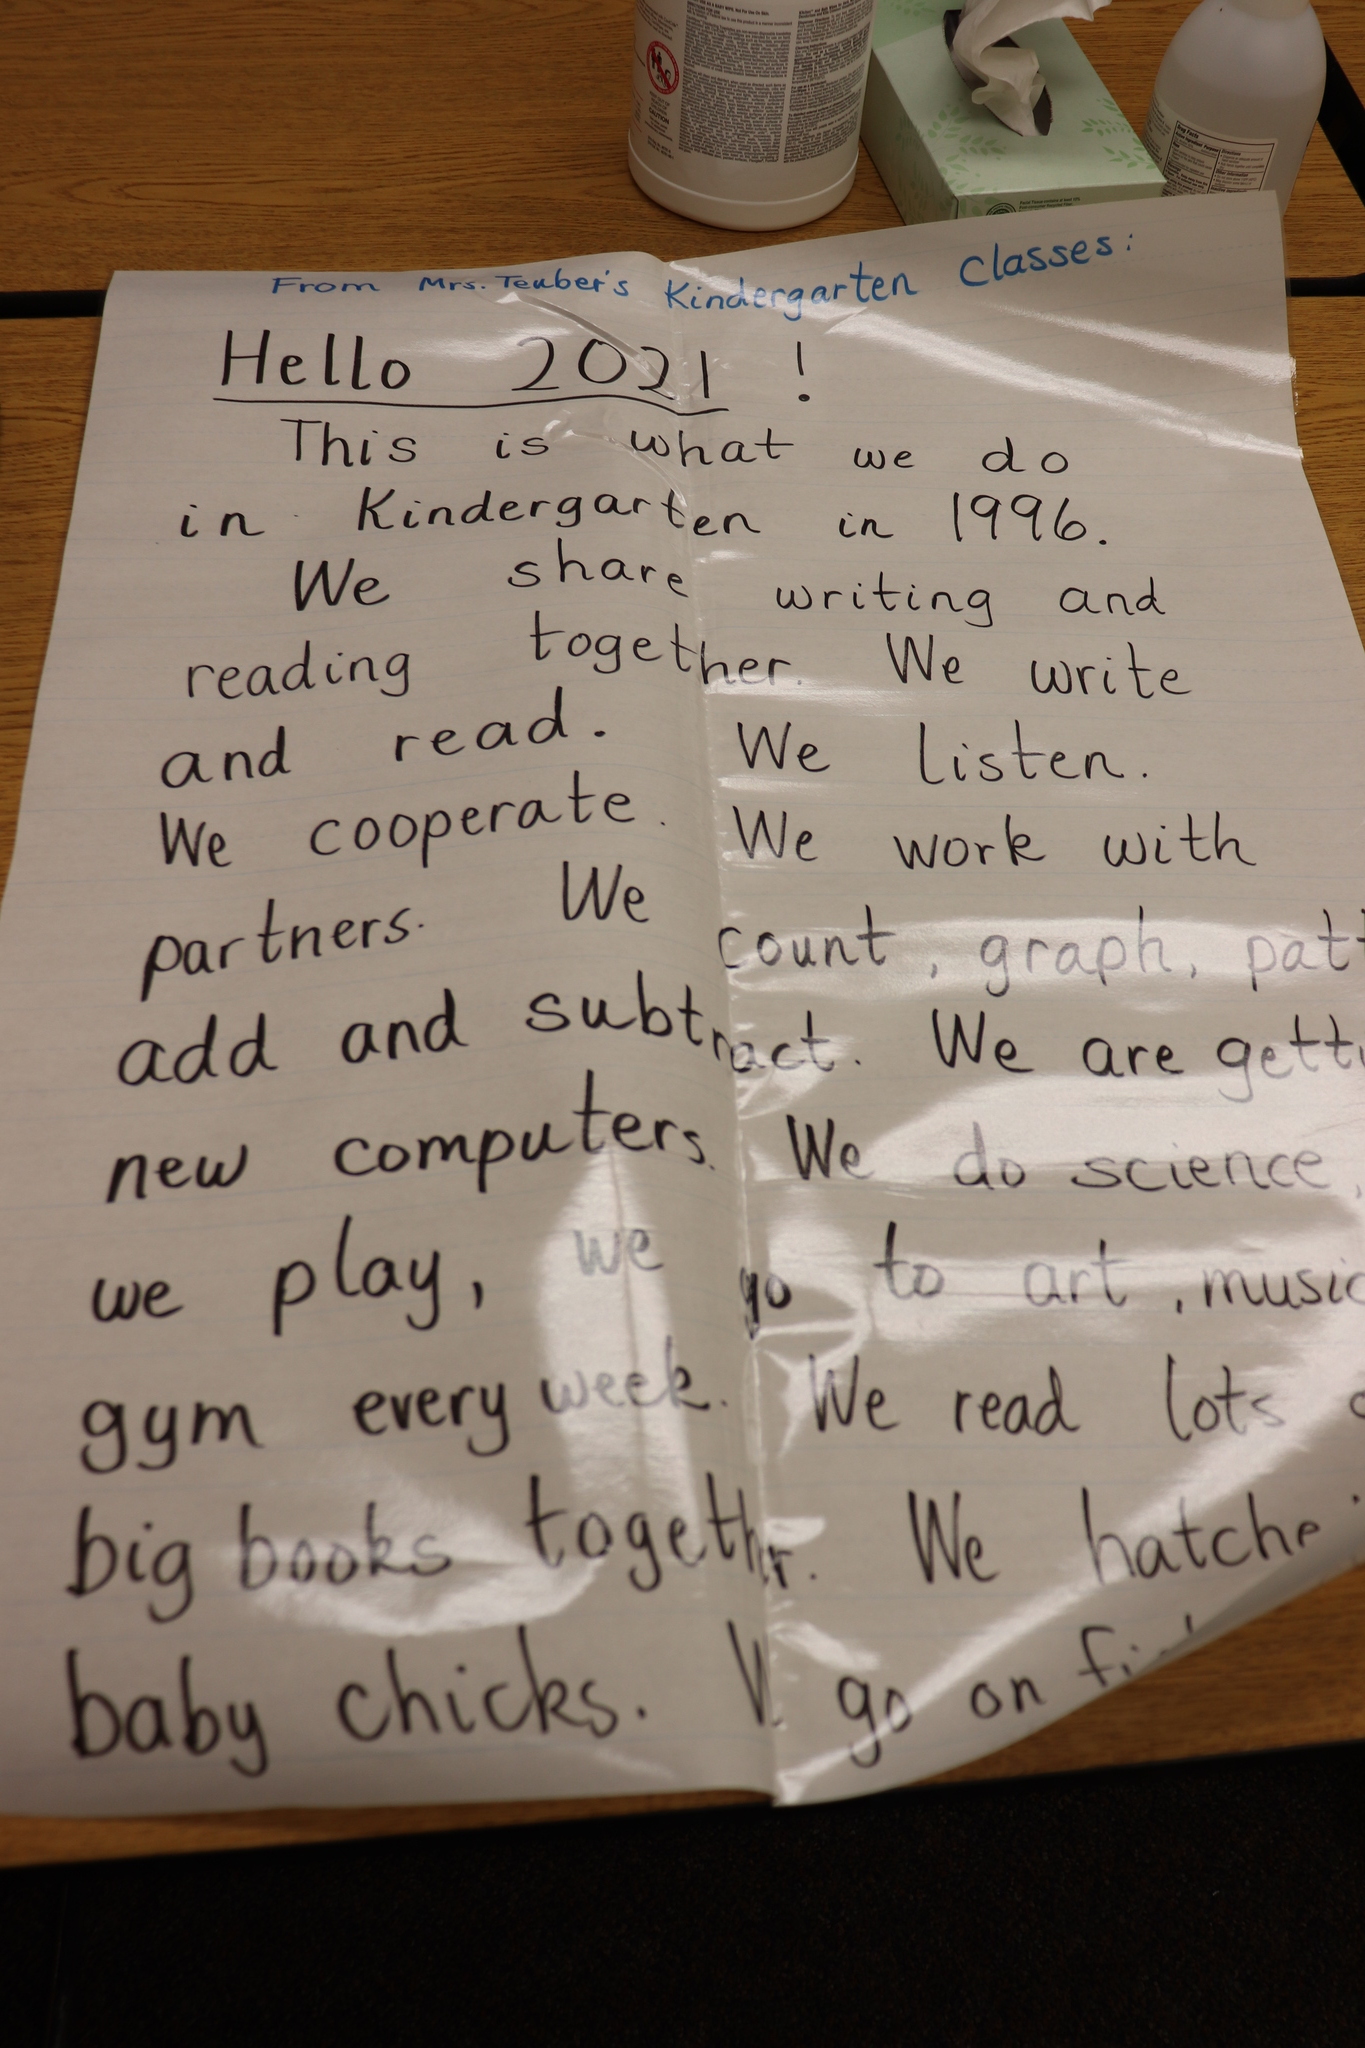 From Mrs. Teuber's Kindergarten Classes:
Hello 2021!
This is what we do
in Kindergarten in 1996.
We share writing and
reading together. We write
and read. We listen.
We cooperate. We work with
partners. We count, graph, patt
add and subtract. We are getti
new computers. We do science,
we play, we go to art, music
gym every week. We read lots
big books together. We hatche
baby chicks. W go on fi
Drug Facts
CAUTION